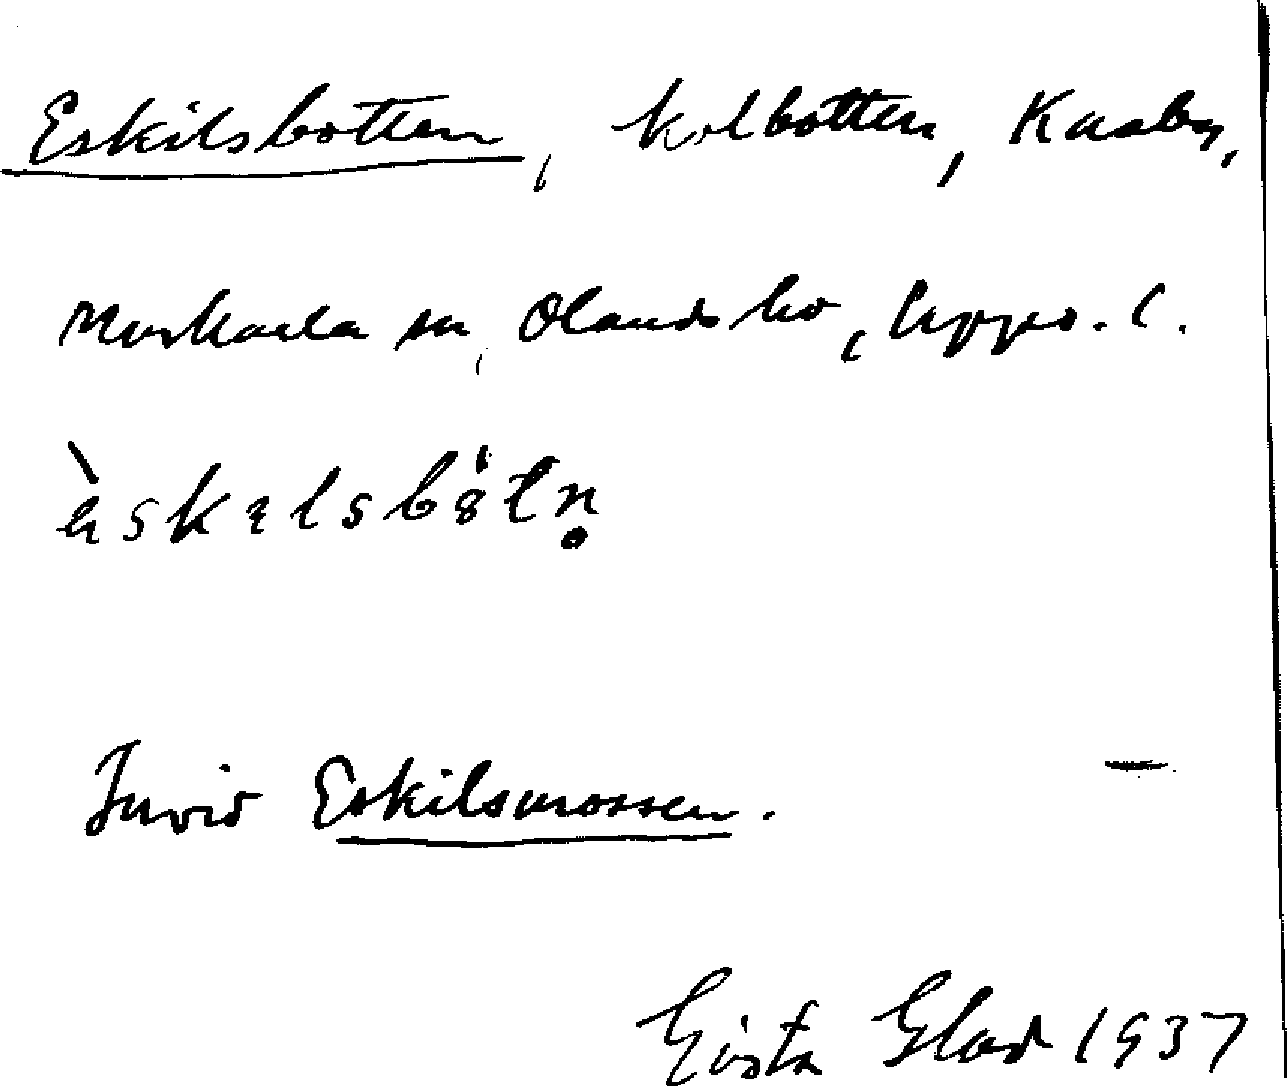 Eskilsbotten, kolbotten, Kasby,
Morkarla sn, Olands hd, Upps. l.
Invid Eskilsmossen. –
Gösta Glad 1937